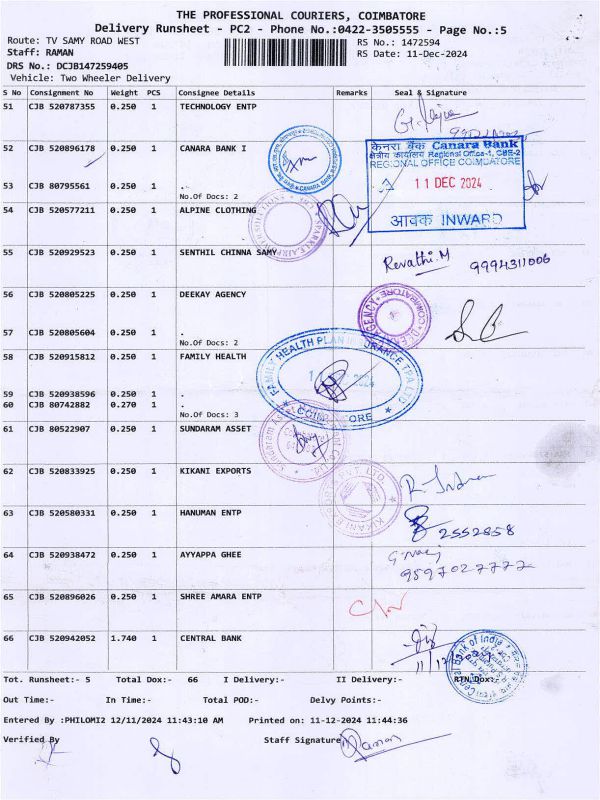 THE PROFESSIONAL COURIERS, COIMBATORE
Delivery Runsheet - PC2 - Phone No.:0422-3505555 - Page No.:5
Route: TV SAMY ROAD WEST RS No.: 1472594
Staff: RAMAN RS Date: 11-Dec-2024
DRS No.: DCJB147259405
Vehicle: Two Wheeler Delivery
S No Consignment No Weight PCS Consignee Details Remarks Seal & Signature
51 CJB 520787355 0.250 1 TECHNOLOGY ENTP
52 CJB 520896178 0.250 1 CANARA BANK I
केनरा बैंक Canara Bank
क्षेत्रीय कार्यालय Regional Office-1, CBE-2
REGIONAL OFFICE COIMBATORE
11 DEC 2024
आवक INWARD
53 CJB 80795561 0.250 1 .
No.Of Docs: 2
54 CJB 520577211 0.250 1 ALPINE CLOTHING
55 CJB 520929523 0.250 1 SENTHIL CHINNA SAMY Revathi.M 9994311006
56 CJB 520805225 0.250 1 DEEKAY AGENCY
57 CJB 520805604 0.250 1 .
No.Of Docs: 2
58 CJB 520915812 0.250 1 FAMILY HEALTH
FAMILY HEALTH PLAN INSURANCE TPA LTD
COIMBATORE
59 CJB 520938596 0.250 1 .
60 CJB 80742882 0.270 1 .
No.Of Docs: 3
61 CJB 80522907 0.250 1 SUNDARAM ASSET
62 CJB 520833925 0.250 1 KIKANI EXPORTS
63 CJB 520580331 0.250 1 HANUMAN ENTP 2552858
64 CJB 520938472 0.250 1 AYYAPPA GHEE 9597027772
65 CJB 520896026 0.250 1 SHREE AMARA ENTP
66 CJB 520942052 1.740 1 CENTRAL BANK
Central Bank of India
Tot. Runsheet:- 5 Total Dox:- 66 I Delivery:- II Delivery:- RTN Dox:-
Out Time:- In Time:- Total POD:- Delvy Points:-
Entered By :PHILOMI2 12/11/2024 11:43:10 AM Printed on: 11-12-2024 11:44:36
Verified By Staff Signature Raman